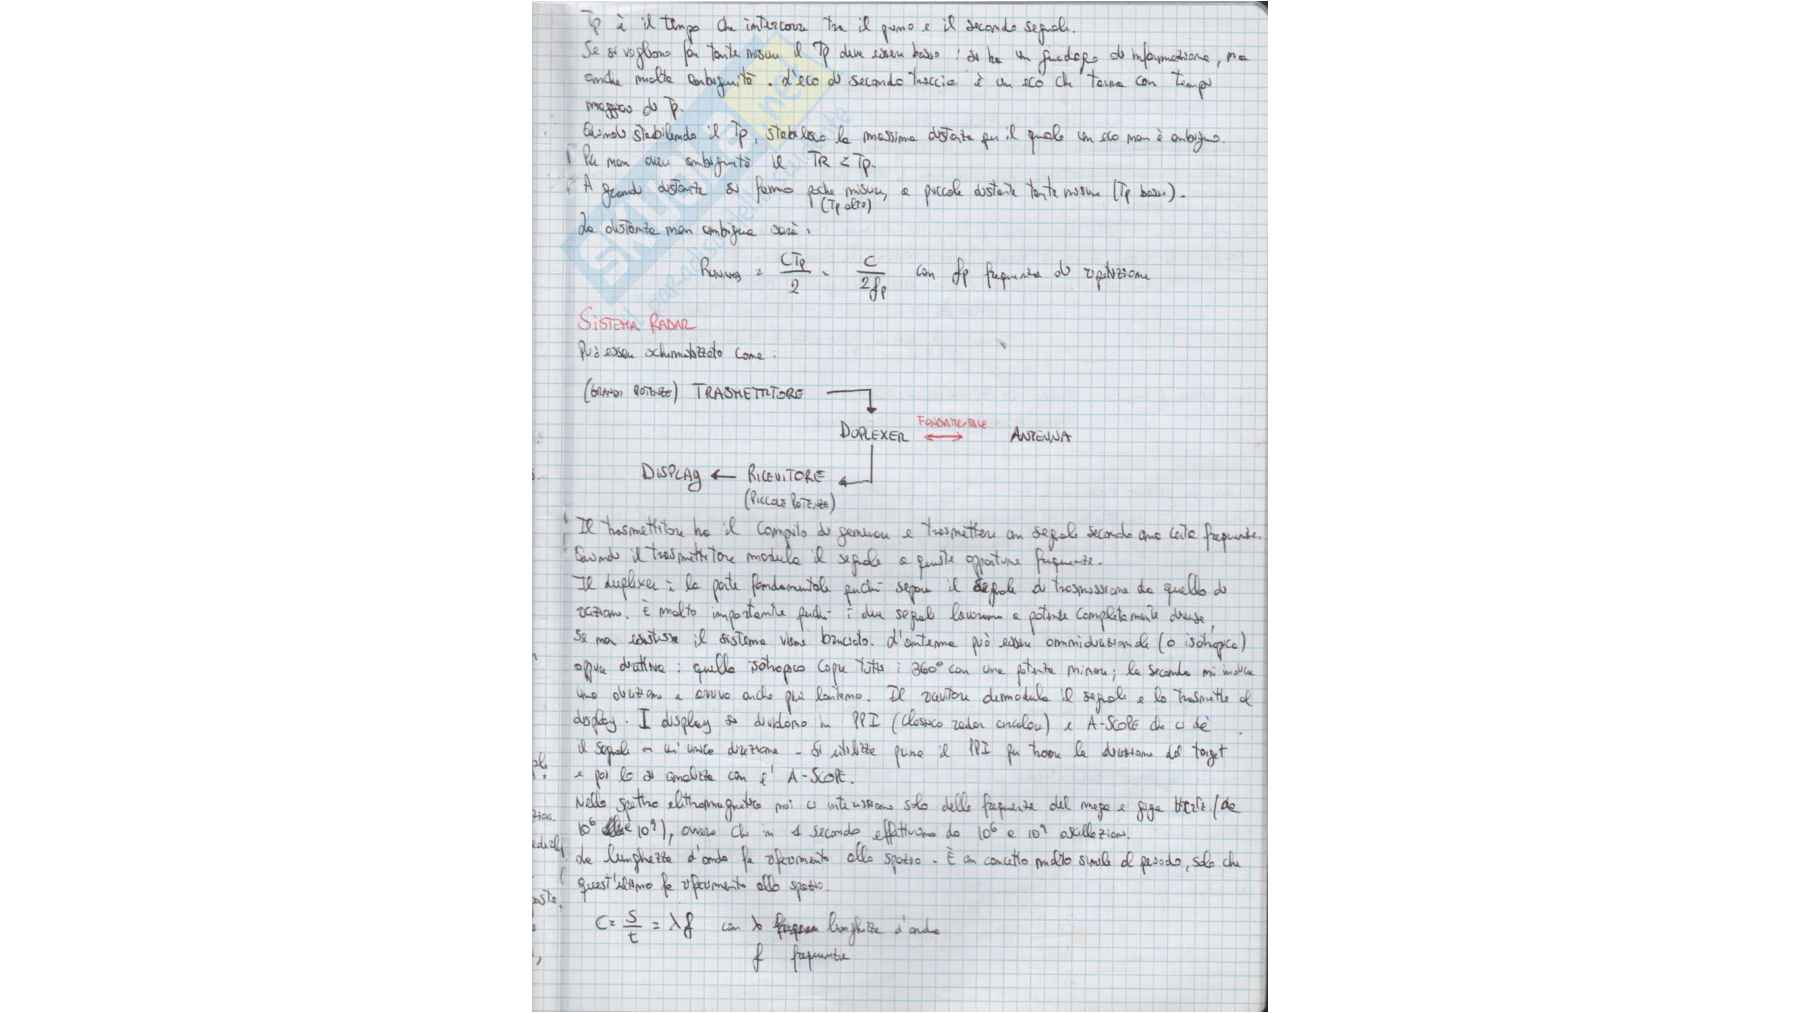 Tp è il tempo che intercorre tra il primo e il secondo segnale.
Se si vogliono far tante misure il Tp deve essere basso: si ha un guadagno di informazione, ma
anche molta ambiguità. L'eco di seconda traccia è un eco che torna con tempi
maggiori di Tp.
Quindi stabilendo il Tp, stabilisco la massima distanza per il quale un eco non è ambiguo.
Per non aver ambiguità il TR < Tp.
A grandi distanze si fanno poche misure, a piccole distanze tante misure (Tp basso).
(Tp alto)
La distanza non ambigua sarà:
= CTp/2 = C/2fp con fp frequenza di ripetizione
SISTEMA RADAR
Può essere schematizzato come:
(GRANDI POTENZE) TRASMETTITORE
DUPLEXER FONDAMENTALE ANTENNA
DISPLAY ← RICEVITORE
(PICCOLE POTENZE)
Il trasmettitore ha il compito di generare e trasmettere un segnale secondo una certa frequenza.
il trasmettitore modula il segnale a queste opportune frequenze.
Il duplexer è la parte fondamentale perché separa il segnale di trasmissione da quello di
ricezione. È molto importante perché i due segnali lavorano a potenze completamente diverse,
se non esistesse il sistema viene bruciato. L'antenna può essere omnidirezionale (o isotropica)
oppure direttiva: quella isotropica copre tutti i 360° con una potenza minore; la seconda mi
una direzione e arrivo anche più lontano. Il ricevitore demodula il segnale e lo trasmette al
display. I display si dividono in PPI (classico radar circolare) e A-SCOPE che ci dà
il segnale in un'unica direzione. Si utilizza prima il PPI per trovare la direzione del target
e poi lo si analizza con l'A-SCOPE.
Nello spettro elettromagnetico noi ci interessiamo solo delle frequenze del mega e giga Hertz (da
10⁶ e 10⁹), ovvero che in 1 secondo effettuano da 10⁶ a 10⁹ oscillazioni.
La lunghezza d'onda fa riferimento allo spazio. È un concetto molto simile al periodo, solo che
quest'ultimo fa riferimento allo spazio.
C = S/t = λf con λ lunghezza d'onda
f frequenza